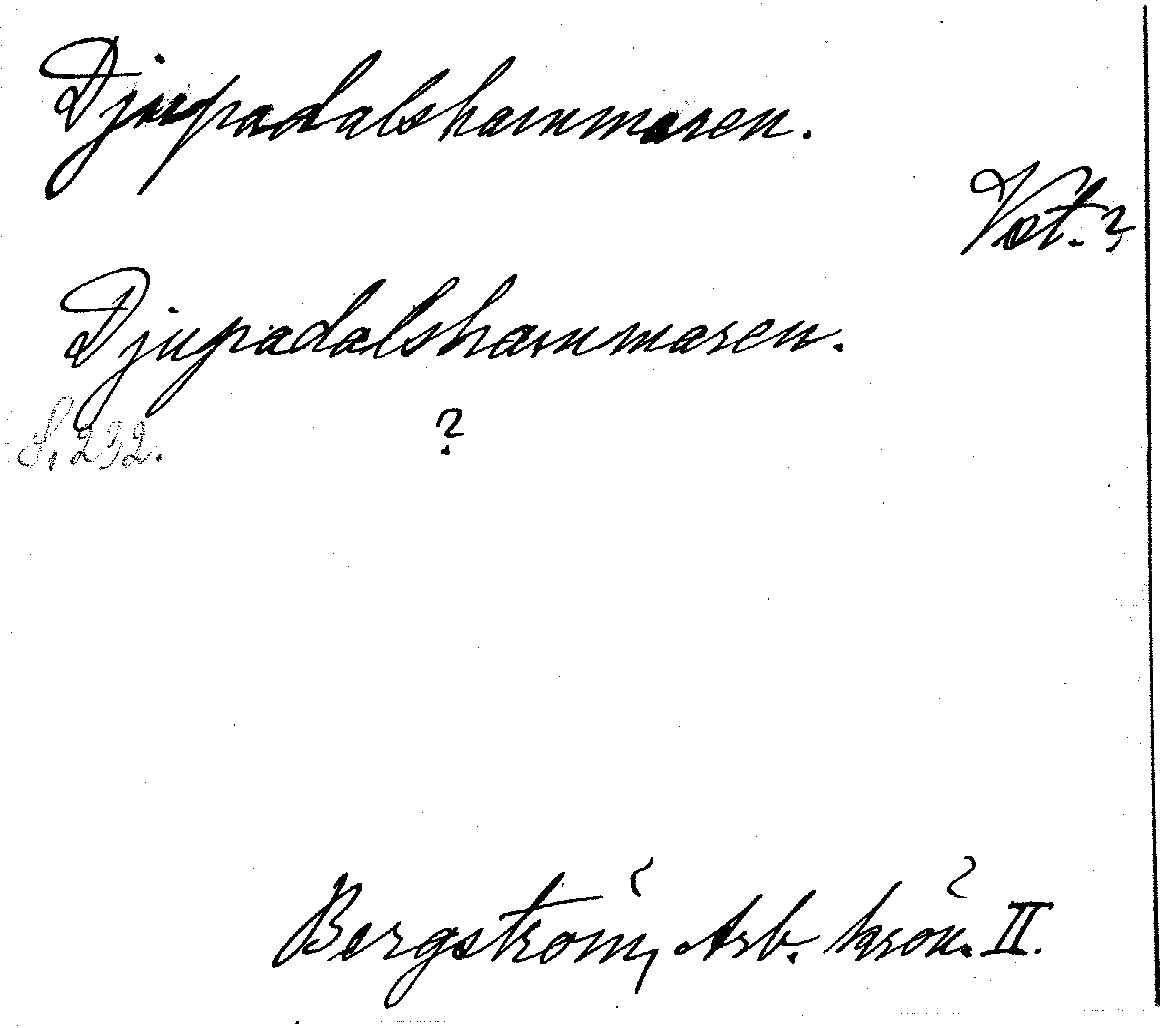 Djupadalshammaren.
Vst.?
Djupadalshammaren.
S. 232.
?
Bergström, Arb. krön. II.